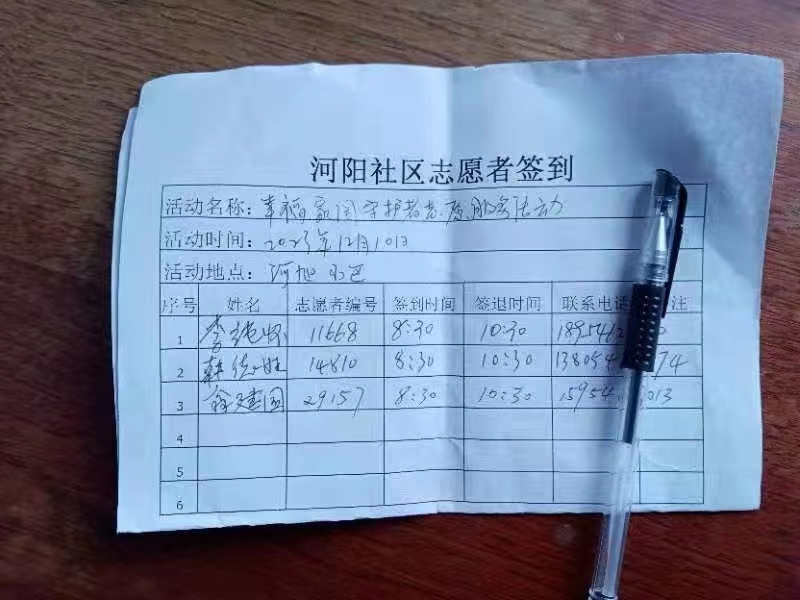 河阳社区志愿者签到
活动名称：幸福家园守护者志愿服务活动
活动时间：2023年12月10日
活动地点：河旭小区
序号 姓名 志愿者编号 签到时间 签退时间 联系电话 注
1 李 11668 8:30 10:30
2 韩 胜 14810 8:30 10:30 74
3 徐建国 29157 8:30 10:30 15954 013
4
5
6